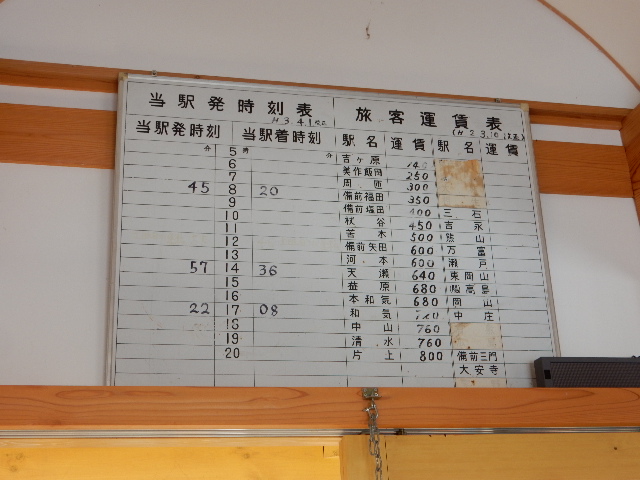 当駅発時刻表 旅客運賃表
H3.4.1改正 (H2.3.10改正)
当駅発時刻 当駅着時刻 駅名 運賃 駅名 運賃
分 5時 分 吉ヶ原 140
6 美作飯岡 250
7 周匝 300
45 8 20 備前福田 350
9 備前塩田 400 三石
10 杖谷 450 吉永
11 苦木 500 熊山
12 備前矢田 600 万富
13 河本 600 瀬戸
57 14 36 天瀬 640 東岡山
15 益原 680 高島
16 本和気 680 岡山
22 17 08 和気 720 中庄
18 中山 760
19 清水 760
20 片上 800 備前三門
大安寺